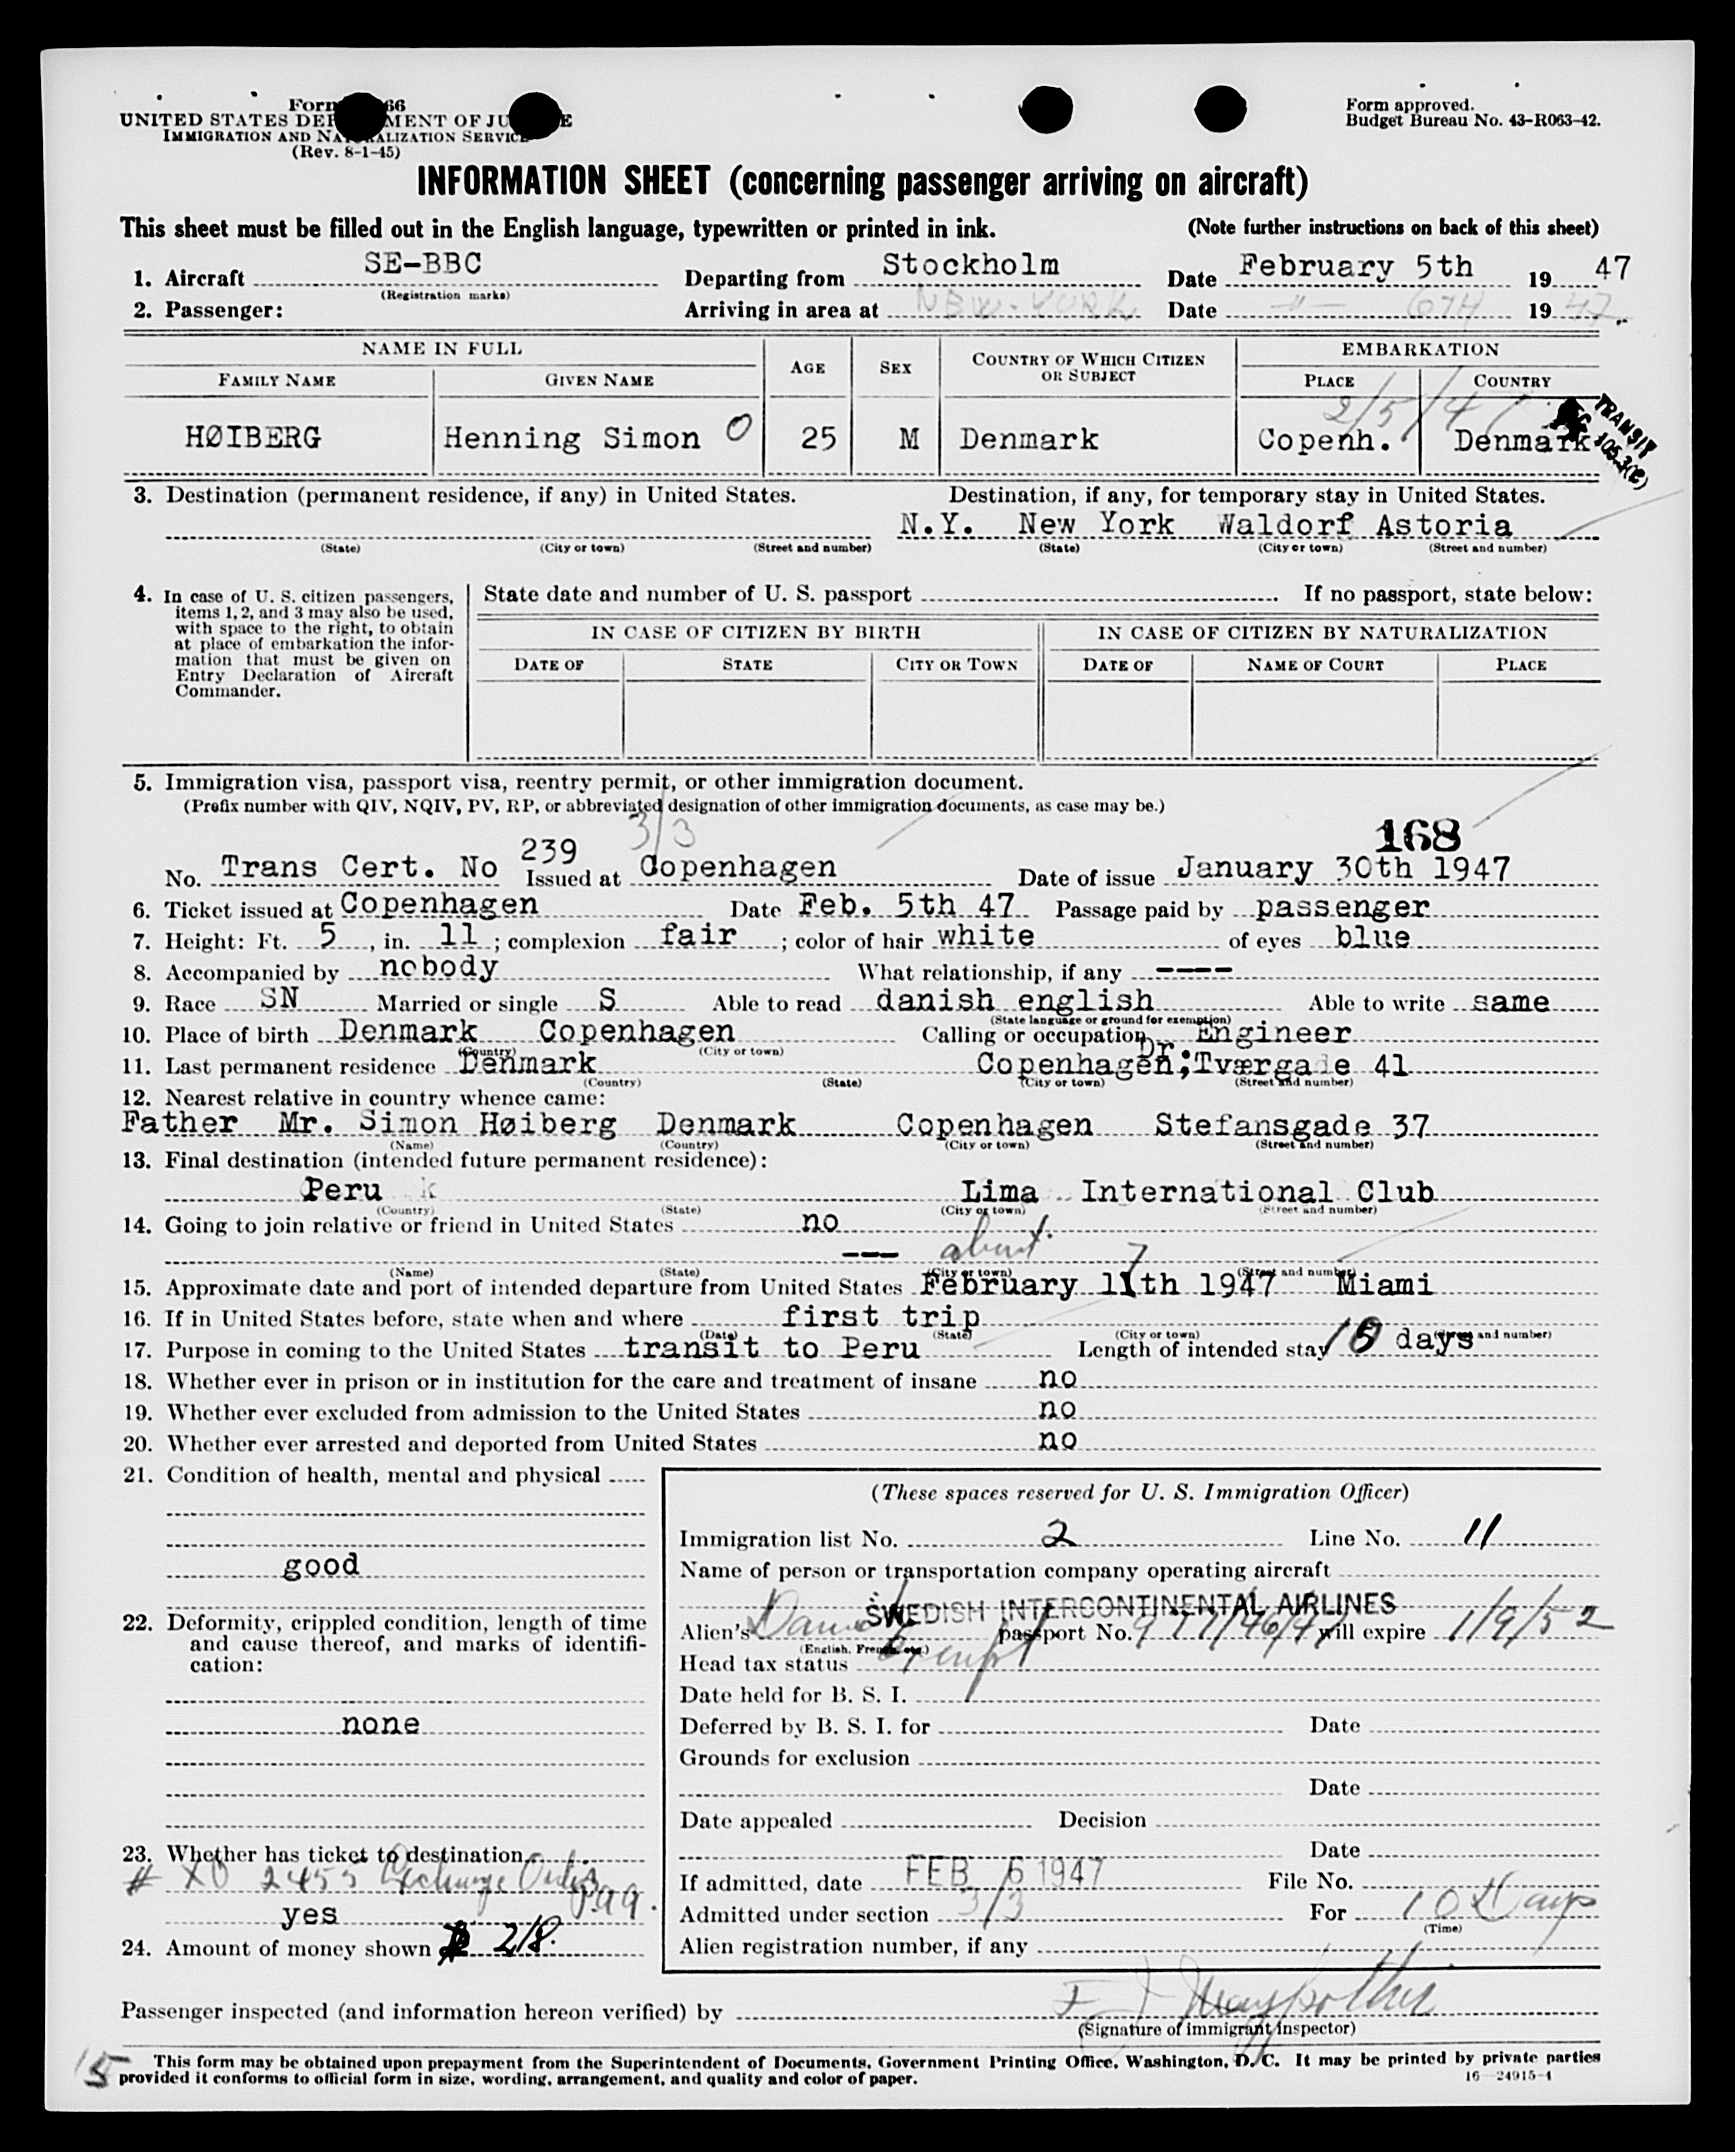 Form 66
UNITED STATES DEP MENT OF JU E
IMMIGRATION AND NATURALIZATION SERVICE
(Rev. 8-1-45)
Form approved.
Budget Bureau No. 43-R063-42.
INFORMATION SHEET (concerning passenger arriving on aircraft)
This sheet must be filled out in the English language, typewritten or printed in ink. (Note further instructions on back of this sheet)
1. Aircraft SE-BBC Departing from Stockholm Date February 5th 19 47
(Registration marks)
2. Passenger: Arriving in area at NEW-YORK Date -"- 6TH 19 47.
NAME IN FULL AGE SEX COUNTRY OF WHICH CITIZEN OR SUBJECT EMBARKATION
FAMILY NAME GIVEN NAME PLACE COUNTRY
2/5/47
HØIBERG Henning Simon O 25 M Denmark Copenh. Denmark
TRANSIT
SEC 105.3(2)
3. Destination (permanent residence, if any) in United States. Destination, if any, for temporary stay in United States.
N.Y. New York Waldorf Astoria
(State) (City or town) (Street and number) (State) (City or town) (Street and number)
4. In case of U. S. citizen passengers, items 1, 2, and 3 may also be used, with space to the right, to obtain at place of embarkation the information that must be given on Entry Declaration of Aircraft Commander.
State date and number of U. S. passport If no passport, state below:
IN CASE OF CITIZEN BY BIRTH IN CASE OF CITIZEN BY NATURALIZATION
DATE OF STATE CITY OR TOWN DATE OF NAME OF COURT PLACE
5. Immigration visa, passport visa, reentry permit, or other immigration document.
(Prefix number with QIV, NQIV, PV, RP, or abbreviated designation of other immigration documents, as case may be.)
3/3
168
No. Trans Cert. No 239 Issued at Copenhagen Date of issue January 30th 1947
6. Ticket issued at Copenhagen Date Feb. 5th 47 Passage paid by passenger
7. Height: Ft. 5, in. 11; complexion fair; color of hair white of eyes blue
8. Accompanied by nobody What relationship, if any ----
9. Race SN Married or single S Able to read danish english Able to write same
(State language or ground for exemption)
10. Place of birth Denmark Copenhagen Calling or occupation Engineer
(Country) (City or town)
11. Last permanent residence Denmark Copenhagen; Dr. Tværgade 41
(Country) (State) (City or town) (Street and number)
12. Nearest relative in country whence came:
Father Mr. Simon Høiberg Denmark Copenhagen Stefansgade 37
(Name) (Country) (City or town) (Street and number)
13. Final destination (intended future permanent residence):
Peru Lima International Club
(Country) (State) (City or town) (Street and number)
14. Going to join relative or friend in United States no
--- about
(Name) (State) (City or town) (Street and number)
15. Approximate date and port of intended departure from United States February 17th 1947 Miami
16. If in United States before, state when and where first trip
(Date) (State) (City or town) (Street and number)
17. Purpose in coming to the United States transit to Peru Length of intended stay 10 days
18. Whether ever in prison or in institution for the care and treatment of insane no
19. Whether ever excluded from admission to the United States no
20. Whether ever arrested and deported from United States no
21. Condition of health, mental and physical
good
22. Deformity, crippled condition, length of time and cause thereof, and marks of identification:
none
23. Whether has ticket to destination
# XO 2455 Exchange Order
yes
24. Amount of money shown $ 218.
(These spaces reserved for U. S. Immigration Officer)
Immigration list No. 2 Line No. 11
Name of person or transportation company operating aircraft
SWEDISH INTERCONTINENTAL AIRLINES
Alien's Danish passport No. 977/46/47 will expire 1/9/52
(English, French, etc.)
Head tax status Exempt
Date held for B. S. I.
Deferred by B. S. I. for Date
Grounds for exclusion
Date
Date appealed Decision
Date
If admitted, date FEB 6 1947 File No.
Admitted under section 3/3 For 10 Days
(Time)
Alien registration number, if any
Passenger inspected (and information hereon verified) by
(Signature of immigrant inspector)
15
This form may be obtained upon prepayment from the Superintendent of Documents, Government Printing Office, Washington, D. C. It may be printed by private parties
provided it conforms to official form in size, wording, arrangement, and quality and color of paper.
16—24915-1